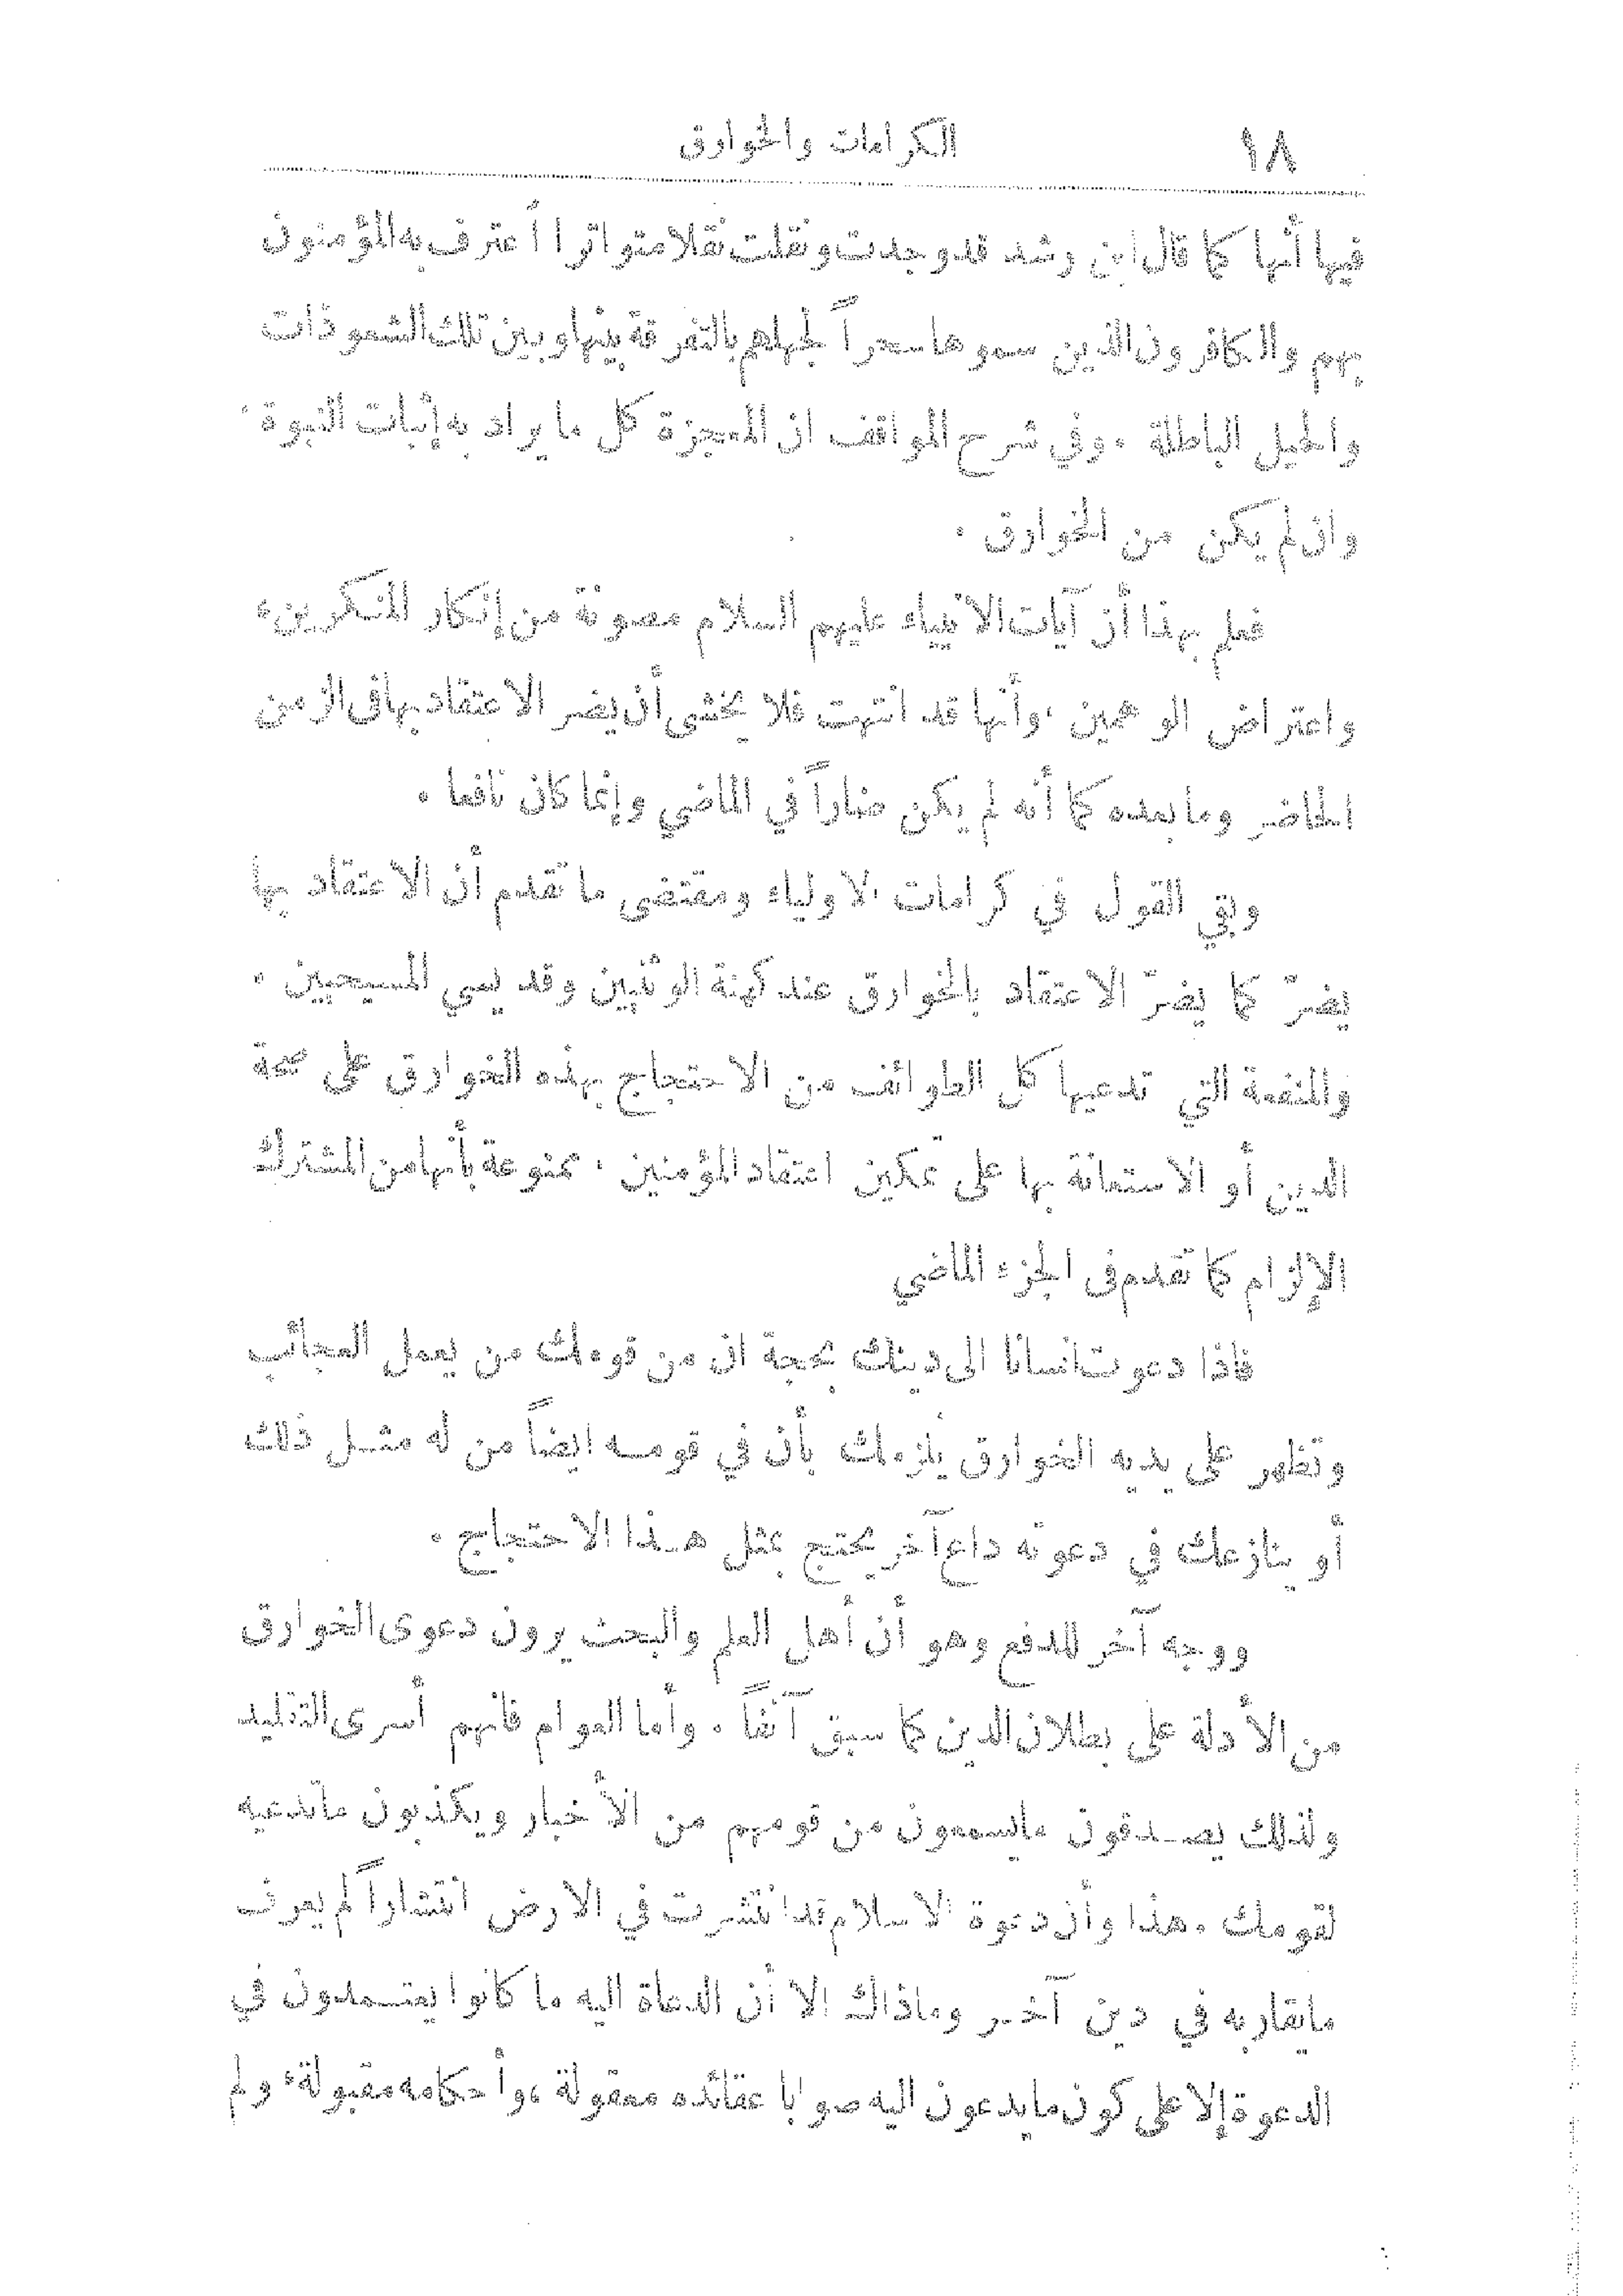 ١٨ الكرامات والخوارق
فيها أنها كما قال ابن رشد قد وجدت ونقلت نقلا متواترا أعترف به المؤمنون
بهم والكافرون الذين سموها سحراً لجهلهم بالتفرقة بينها وبين تلك الشعوذات
والحيل الباطلة . وفي شرح المواقف ان المعجزة كل ما يراد به إثبات النبوة
وان لم يكن من الخوارق .
فعلم بهذا أن آيات الانبياء عليهم السلام مصونة من إنكار المنكرين ،
واعتراض الوهمين ، وأنها قد انتهت فلا يخشى أن يضر الاعتقاد بها في الزمن
الحاضر وما بعده كما أنه لم يكن ضاراً في الماضي وإنما كان نافعا .
وبقي القول في كرامات الاولياء ومقتضى ما تقدم أن الاعتقاد بها
يضرّ كما يضرّ الاعتقاد بالخوارق عند كهنة الوثنيين وقديسي المسيحيين .
والمنفعة التي تدعيها كل الطوائف من الاحتجاج بهذه الخوارق على صحة
الدين أو الاستعانة بها على تمكين اعتقاد المؤمنين ، ممنوعة بأنها من المشترك
الإلزام كما تقدم في الجزء الماضي
فاذا دعوت انسانا الى دينك بحجة ان من قومك من يعمل العجائب
وتظهر على يديه الخوارق يلزمك بأن في قومه ايضاً من له مثل ذلك
أو ينازعك في دعوته داع آخر يحتج بمثل هذا الاحتجاج .
ووجه آخر للدفع وهو أن أهل العلم والبحث يرون دعوى الخوارق
من الأدلة على بطلان الدين كما سبق آنفاً . وأما العوام فانهم أسرى التقليد
ولذلك يصدقون مايسمعون من قومهم من الأخبار ويكذبون ماتدعيه
لقومك . هذا وأن دعوة الاسلام قد انتشرت في الارض انتشاراً لم يعرف
مايقاربه في دين آخر وماذاك الا أن الدعاة اليه ما كانوا يعتمدون في
الدعوة إلا على كون مايدعون اليه صوابا عقائده معقولة ، وأحكامه مقبولة ، ولم